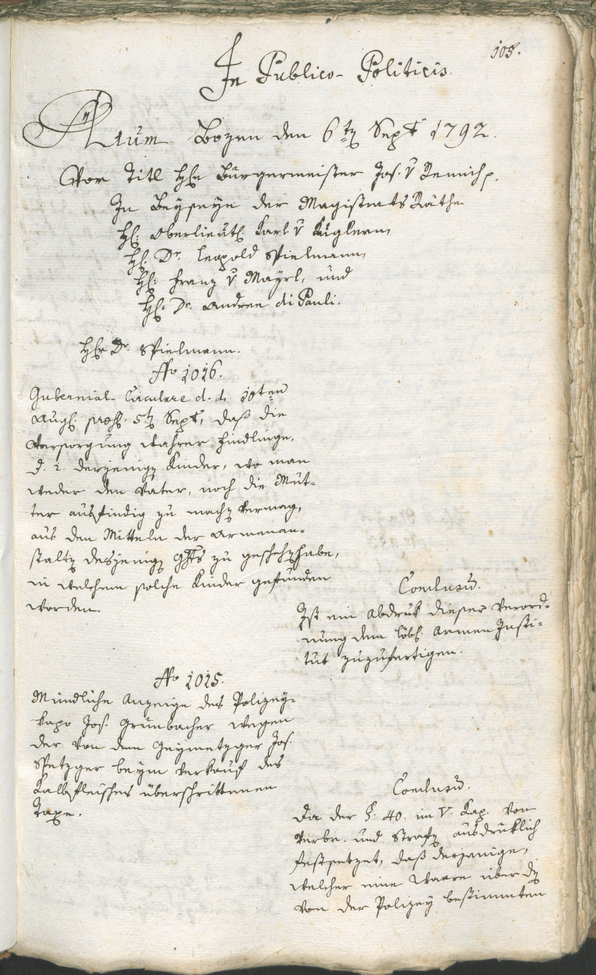 105.
In Publico-Politicis.
Actum Bozen den 6tn Sept 1792.
Vor Titl Hhn Bürgermeister Jos. v Remich p.
In Beyseyn der Magistrats Räthe
Hh. Oberlieut. Karl v
Hh. Dr. Leopold Spielmann,
Hh. Franz v Mayrl, und
Hh. Dr. Andree di Pauli.
Hhr Dr. Spielmann.
No 1016.
Gubernial Circulare d. d. 10ten
Augst, praes. 5tn Sept, daß die
Versorgung wahrer Findlinge,
d. i. derjenign Kinder, wo man
weder den Vater, noch die Mut-
ter ausfindig zu machn vermag,
aus den Mitteln der Armenan-
staltn desjenign zu geschehn habe,
in welchem solche Kinder gefunden
worden.
Conclusum.
Ist ein Abdruk dieser Verord-
nung dem löbl. Armen Insti-
tut zuzufertigen.
No 1015.
Mündliche Anzeige des Polizey-
kapo Jos. Grünbacher wegen
der von dem Geymetzger Jos.
Spetzger beym Verkauf des
Kalbfleisches überschrittenen
Taxe.
Conclusum.
Da der §. 40. im V. Kap. von
Verbr. und Strafn ausdruklich
festsetzet, daß derjenige,
welcher eine Waare über die
von der Polizey bestimmten